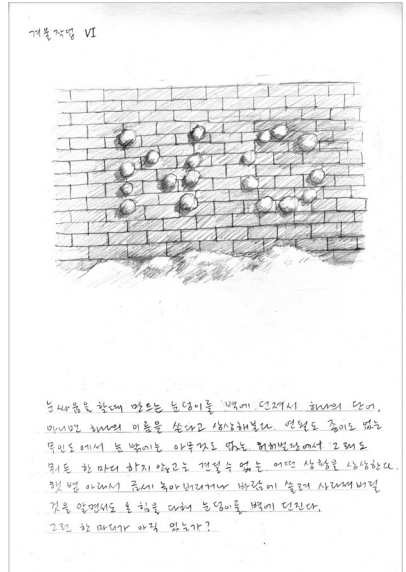 겨울작업 VI
눈싸움을 할때 만드는 눈덩이를 벽에 던져서 하나의 단어,
아니면 하나의 이름을 쓴다고 상상해본다. 연필도 종이도 없는
무인도에서 눈 밖에는 아무것도 없는 허허벌판에서 그래도
뭐든 한 마디 하지 않고는 견딜 수 없는 어떤 상황을 상상한다.
햇볕 아래서 금세 녹아버리거나 바람에 쓸려 사라져버릴
것을 알면서도 온 힘을 다해 눈덩이를 벽에 던진다.
그런 한 마디가 아직 있는가?